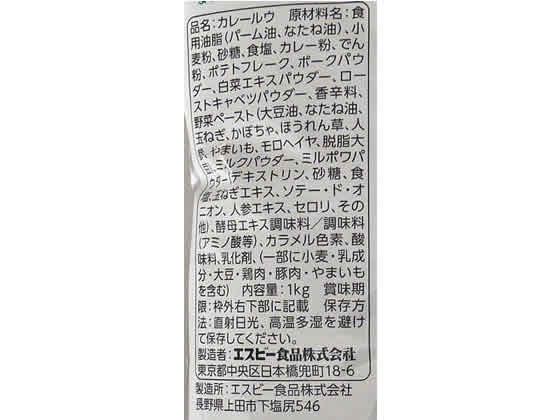 品名:カレールウ　原材料名:食
用油脂(パーム油、なたね油)、小
麦粉、砂糖、食塩、カレー粉、でん
粉、ポテトフレーク、ポークパウ
ダー、白菜エキスパウダー、ロー
ストキャベツパウダー、香辛料、
野菜ペースト(大豆油、なたね油、
玉ねぎ、かぼちゃ、ほうれん草、人
参、やまいも、モロヘイヤ、脱脂大
豆)、ミルクパウダー、ミルポワパ
ウダー、デキストリン、砂糖、食
塩、玉ねぎエキス、ソテー・ド・オ
ニオン、人参エキス、セロリ、その
他)、酵母エキス調味料/調味料
(アミノ酸等)、カラメル色素、酸
味料、乳化剤、(一部に小麦・乳成
分・大豆・鶏肉・豚肉・やまいも
を含む)　内容量:1kg　賞味期
限:枠外右下部に記載　保存方
法:直射日光、高温多湿を避け
て保存してください。
製造者:エスビー食品株式会社
東京都中央区日本橋兜町18-6
製造所:エスビー食品株式会社
長野県上田市下塩尻546